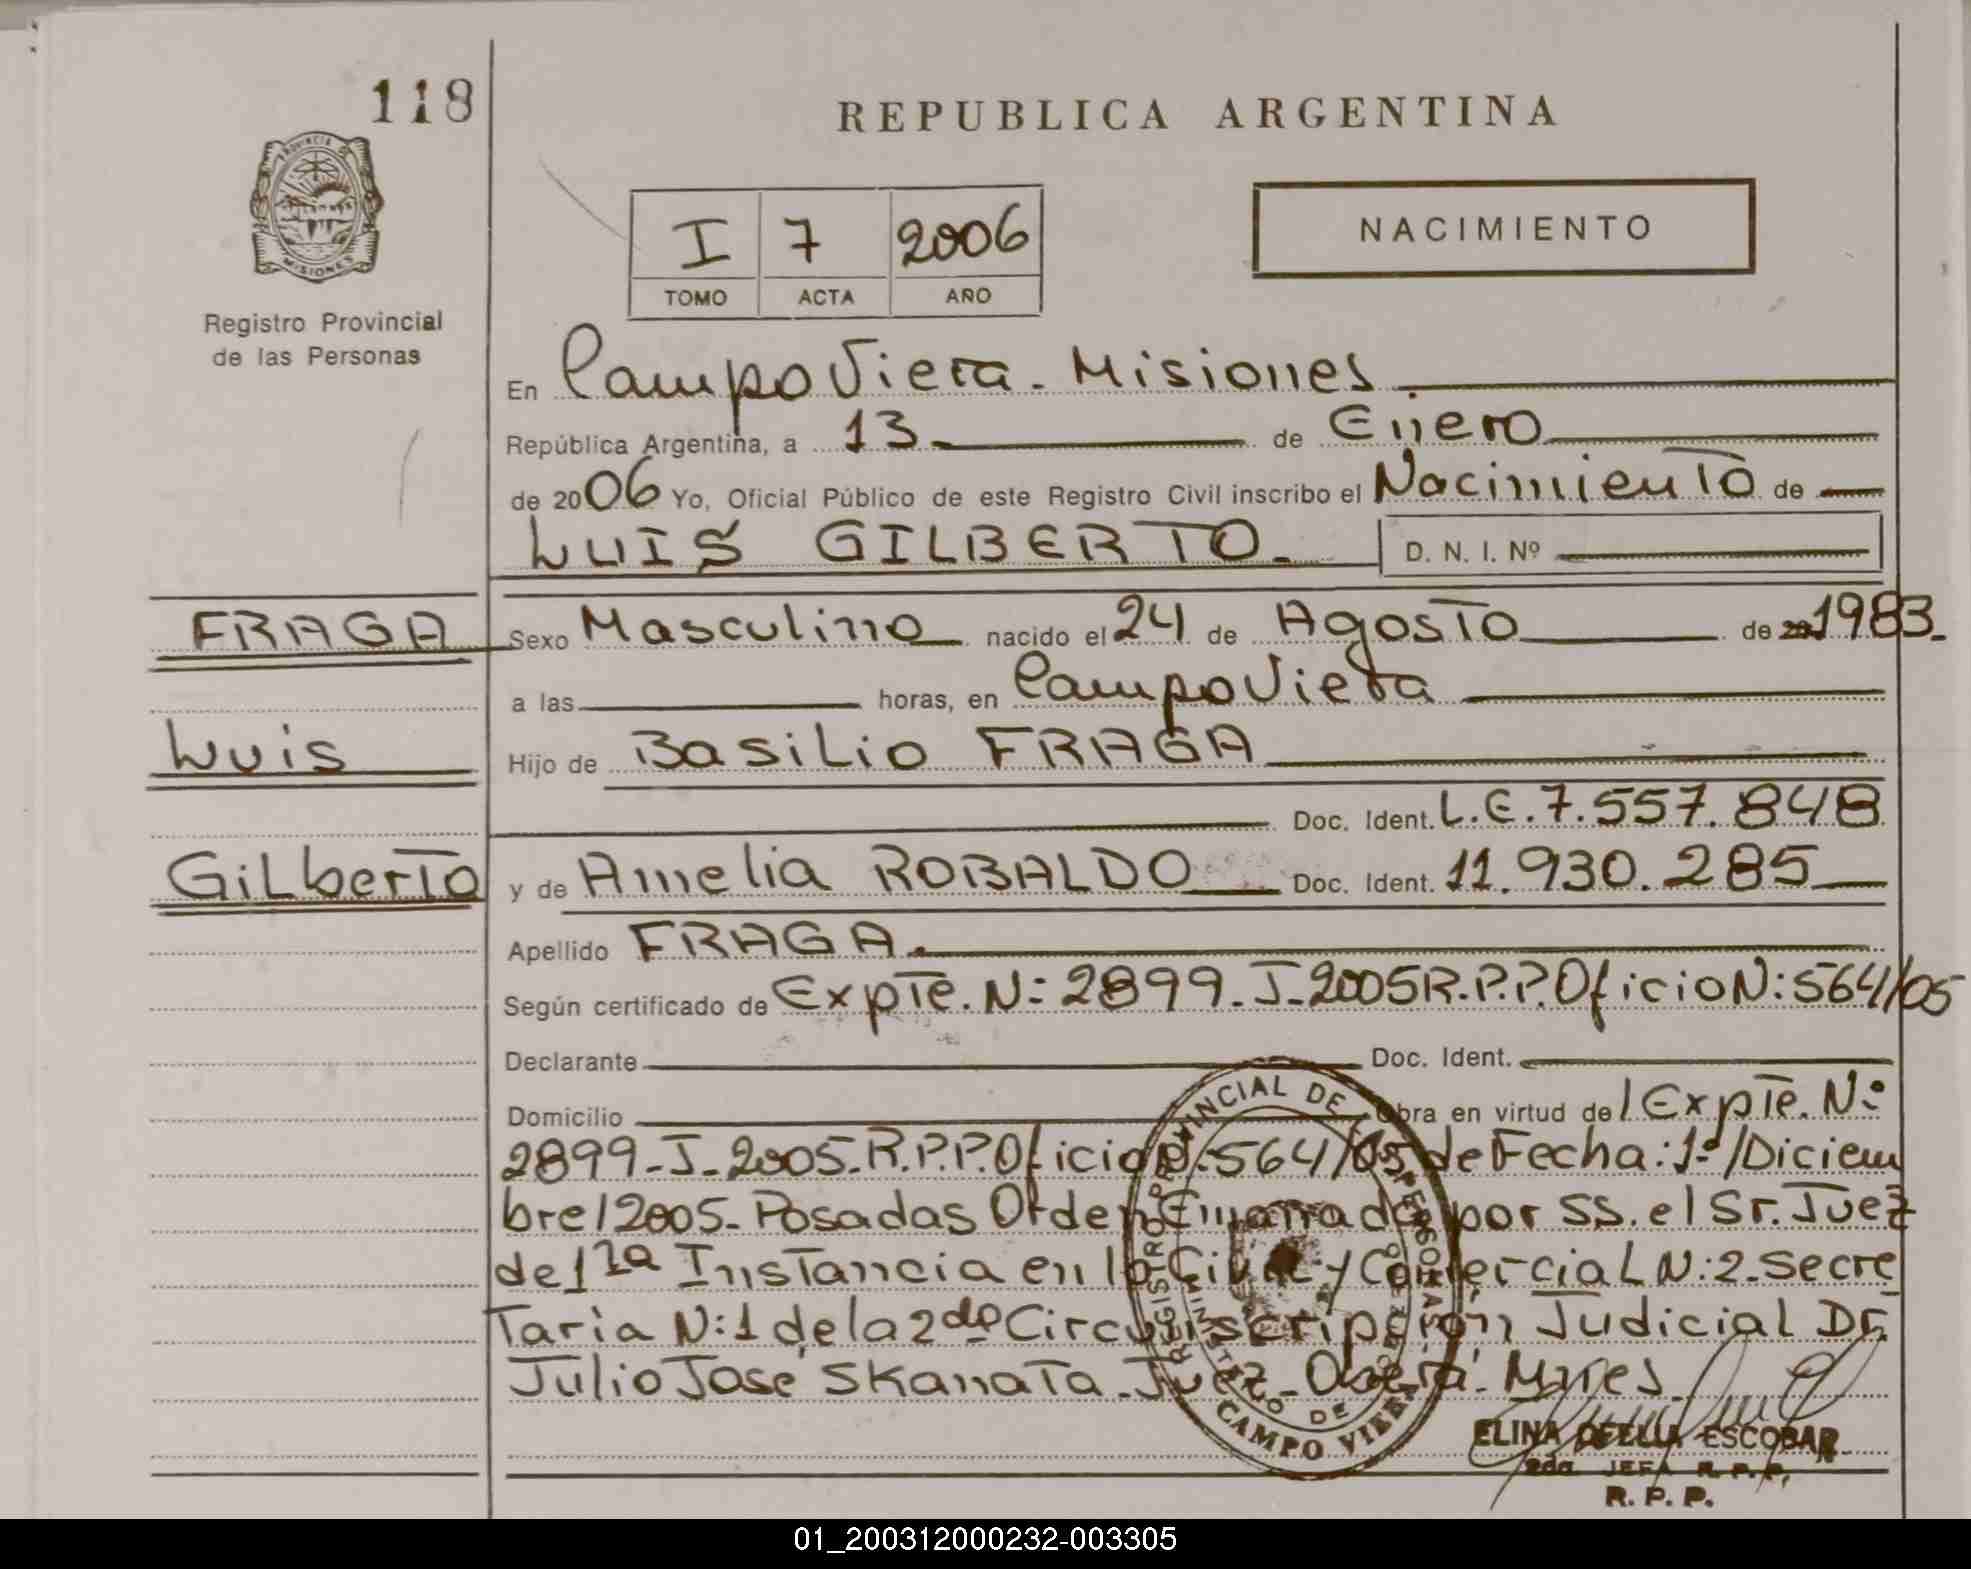 118
REPUBLICA ARGENTINA
PROVINCIA DE
MISIONES
I 7 2006
TOMO ACTA AÑO
NACIMIENTO
Registro Provincial
de las Personas
En Campo Viera - Misiones
República Argentina, a 13 de Enero
de 2006 Yo, Oficial Público de este Registro Civil inscribo el Nacimiento de
LUIS GILBERTO. D. N. I. Nº
FRAGA
Luis
Gilberto
Sexo Masculino nacido el 24 de Agosto de 20 1983.
a las horas, en Campo Viera
Hijo de Basilio FRAGA
Doc. Ident. L.E. 7.557.848
y de Amelia ROBALDO Doc. Ident. 11.930.285
Apellido FRAGA.
Según certificado de Expte. N: 2899-J-2005 R.P.P. Oficio N: 564/05
Declarante Doc. Ident.
Domicilio Obra en virtud del Expte. Nº
2899-J-2005-R.P.P. Oficio N: 564/05 de Fecha: 1º/Diciem
bre/2005- Posadas Orden Emanada por SS. el Sr. Juez
de 1ra Instancia en lo Civil y Comercial N: 2- Secre
Taria N: 1 de la 2da Circunscripción Judicial Dr.
Julio José Skanata - Juez - Oberá - Mnes.
REGISTRO PROVINCIAL DE LAS PERSONAS
MINISTERIO DE GOBIERNO
CAMPO VIERA
ELINA DELLIA ESCOBAR
2da JEFA R. P. P.
R. P. P.
01_200312000232-003305